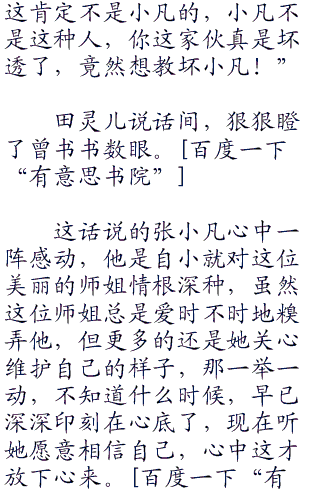 这肯定不是小凡的，小凡不
是这种人，你这家伙真是坏
透了，竟然想教坏小凡！”
田灵儿说话间，狠狠瞪
了曾书书数眼。[百度一下
“有意思书院”]
这话说的张小凡心中一
阵感动，他是自小就对这位
美丽的师姐情根深种，虽然
这位师姐总是爱时不时地糗
弄他，但更多的还是她关心
维护自己的样子，那一举一
动，不知道什么时候，早已
深深印刻在心底了，现在听
她愿意相信自己，心中这才
放下心来。[百度一下“有